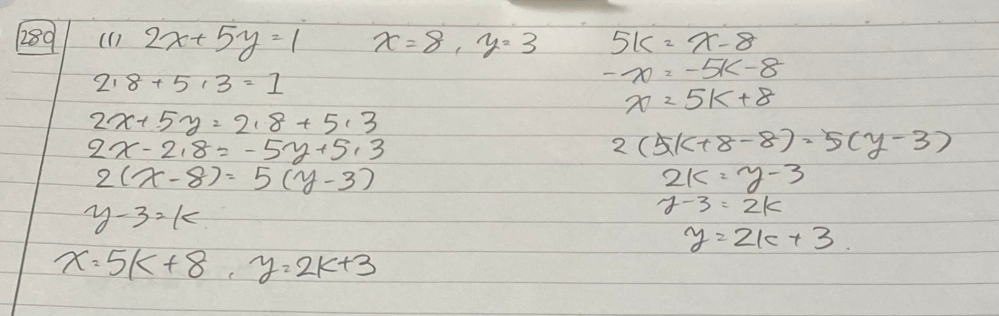 280 (1) 2x+5y=1 x=8, y=3
2·8+5·3=1
2x+5y=2·8+5·3
2x-2·8=-5y+5·3
2(x-8)=5(y-3)
y-3=k
x=5k+8, y=2k+3
5k=x-8
-x=-5k-8
x=5k+8
2(5k+8-8)=5(y-3)
2k=y-3
y-3=2k
y=2k+3.